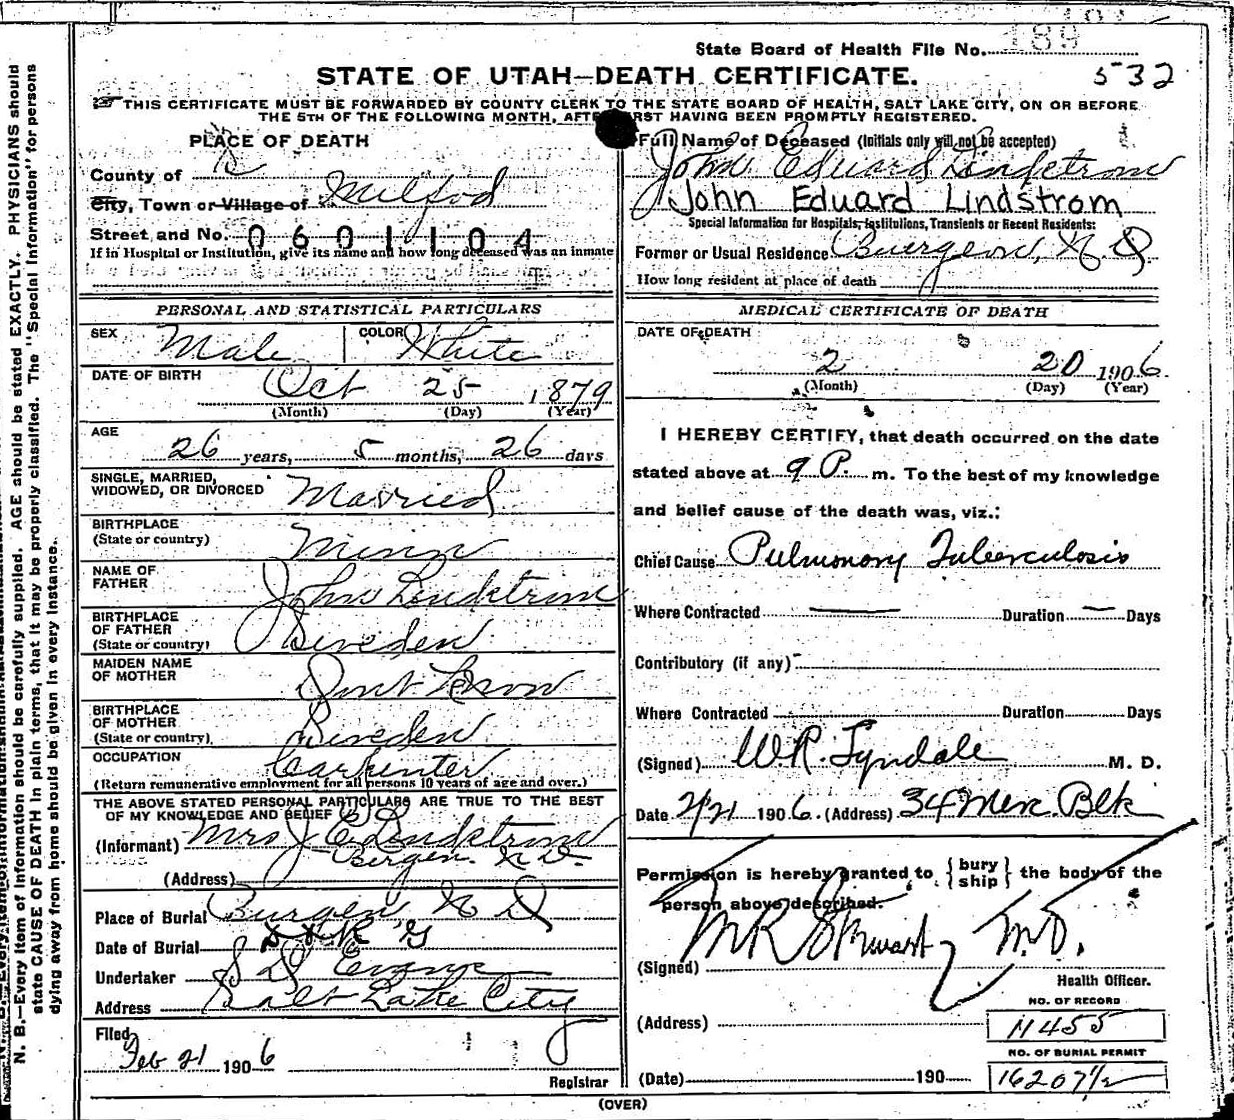 189
State Board of Health File No.
532
STATE OF UTAH—DEATH CERTIFICATE.
THIS CERTIFICATE MUST BE FORWARDED BY COUNTY CLERK TO THE STATE BOARD OF HEALTH, SALT LAKE CITY, ON OR BEFORE
THE 5TH OF THE FOLLOWING MONTH, AFTE RST HAVING BEEN PROMPTLY REGISTERED.
PLACE OF DEATH
County of
City, Town or Village of Milford
Street and No. 0601104
If in Hospital or Institution, give its name and how long deceased was an inmate
Full Name of Deceased (Initials only will not be accepted)
John Eduard Lindstrom
John Eduard Lindstrom
Special Information for Hospitals, Institutions, Transients or Recent Residents:
Former or Usual Residence N. D
How long resident at place of death
PERSONAL AND STATISTICAL PARTICULARS
SEX Male COLOR White
DATE OF BIRTH Oct 25 1879
(Month) (Day) (Year)
AGE
26 years, 5 months, 26 days
SINGLE, MARRIED,
WIDOWED, OR DIVORCED Married
BIRTHPLACE
(State or country) Minn
NAME OF
FATHER John Lindstrom
BIRTHPLACE
OF FATHER
(State or country) Sweden
MAIDEN NAME
OF MOTHER Dont Know
BIRTHPLACE
OF MOTHER
(State or country) Sweden
OCCUPATION Carpenter
(Return remunerative employment for all persons 10 years of age and over.)
THE ABOVE STATED PERSONAL PARTICULARS ARE TRUE TO THE BEST
OF MY KNOWLEDGE AND BELIEF
(Informant) Mrs J E Lindstrom
Bergen. N D.
(Address)
Place of Burial Burgen N D
Date of Burial
Undertaker S D Evans
Address Salt Lake City
Filed
Feb 21 1906
Registrar
MEDICAL CERTIFICATE OF DEATH
DATE OF DEATH
2 20 1906
(Month) (Day) (Year)
I HEREBY CERTIFY, that death occurred on the date
stated above at 9 P. m. To the best of my knowledge
and belief cause of the death was, viz.:
Chief Cause Pulmonory Tuberculosis
Where Contracted — Duration — Days
Contributory (if any)
Where Contracted Duration Days
(Signed) W R. Tyndale M. D.
Date 2/21 1906. (Address) 34 Merc. Blk
Permission is hereby granted to { bury ship } the body of the
person above described.
(Signed) M R Stewart M.D.
Health Officer.
NO. OF RECORD
(Address) 11455
NO. OF BURIAL PERMIT
(Date) 190 16207 1/2
(OVER)
N. B.—Every item of information should be carefully supplied. AGE should be stated EXACTLY. PHYSICIANS should
state CAUSE OF DEATH in plain terms, that it may be properly classified. The "Special Information" for persons
dying away from home should be given in every instance.